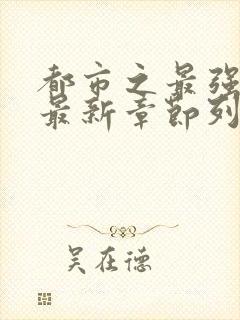 都市之最强
最新章节列
吴在德